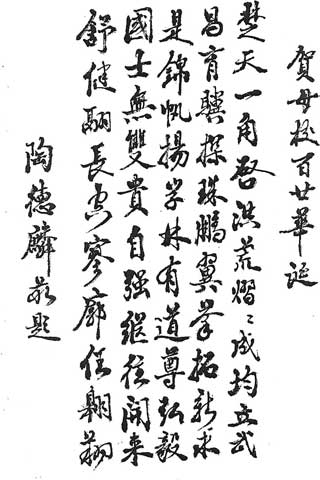 賀母校百廿華誕
楚天一角啓洪荒熠〻成均立武
昌育驥探珠鵬翼举拓新求
是錦帆揚学林有道尊弘毅
國士無雙貴自强繼往開来
舒健翮長空寥廓任翱翔
陶德麟敬題